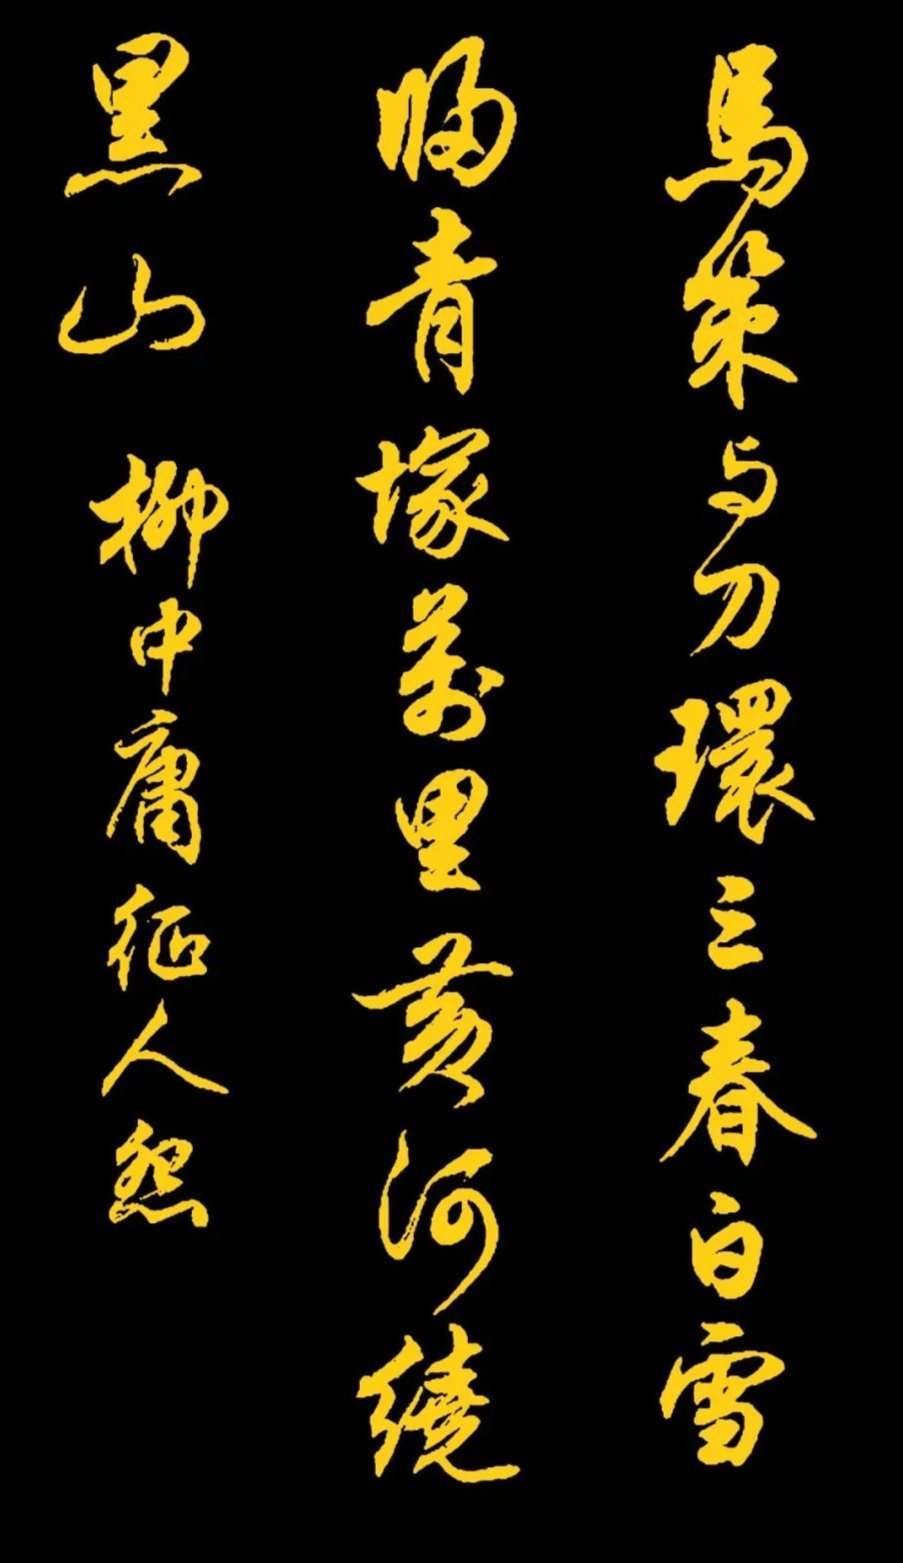 馬策与刀環三春白雪
歸青塚萬里黄河繞
黑山 柳中庸征人怨